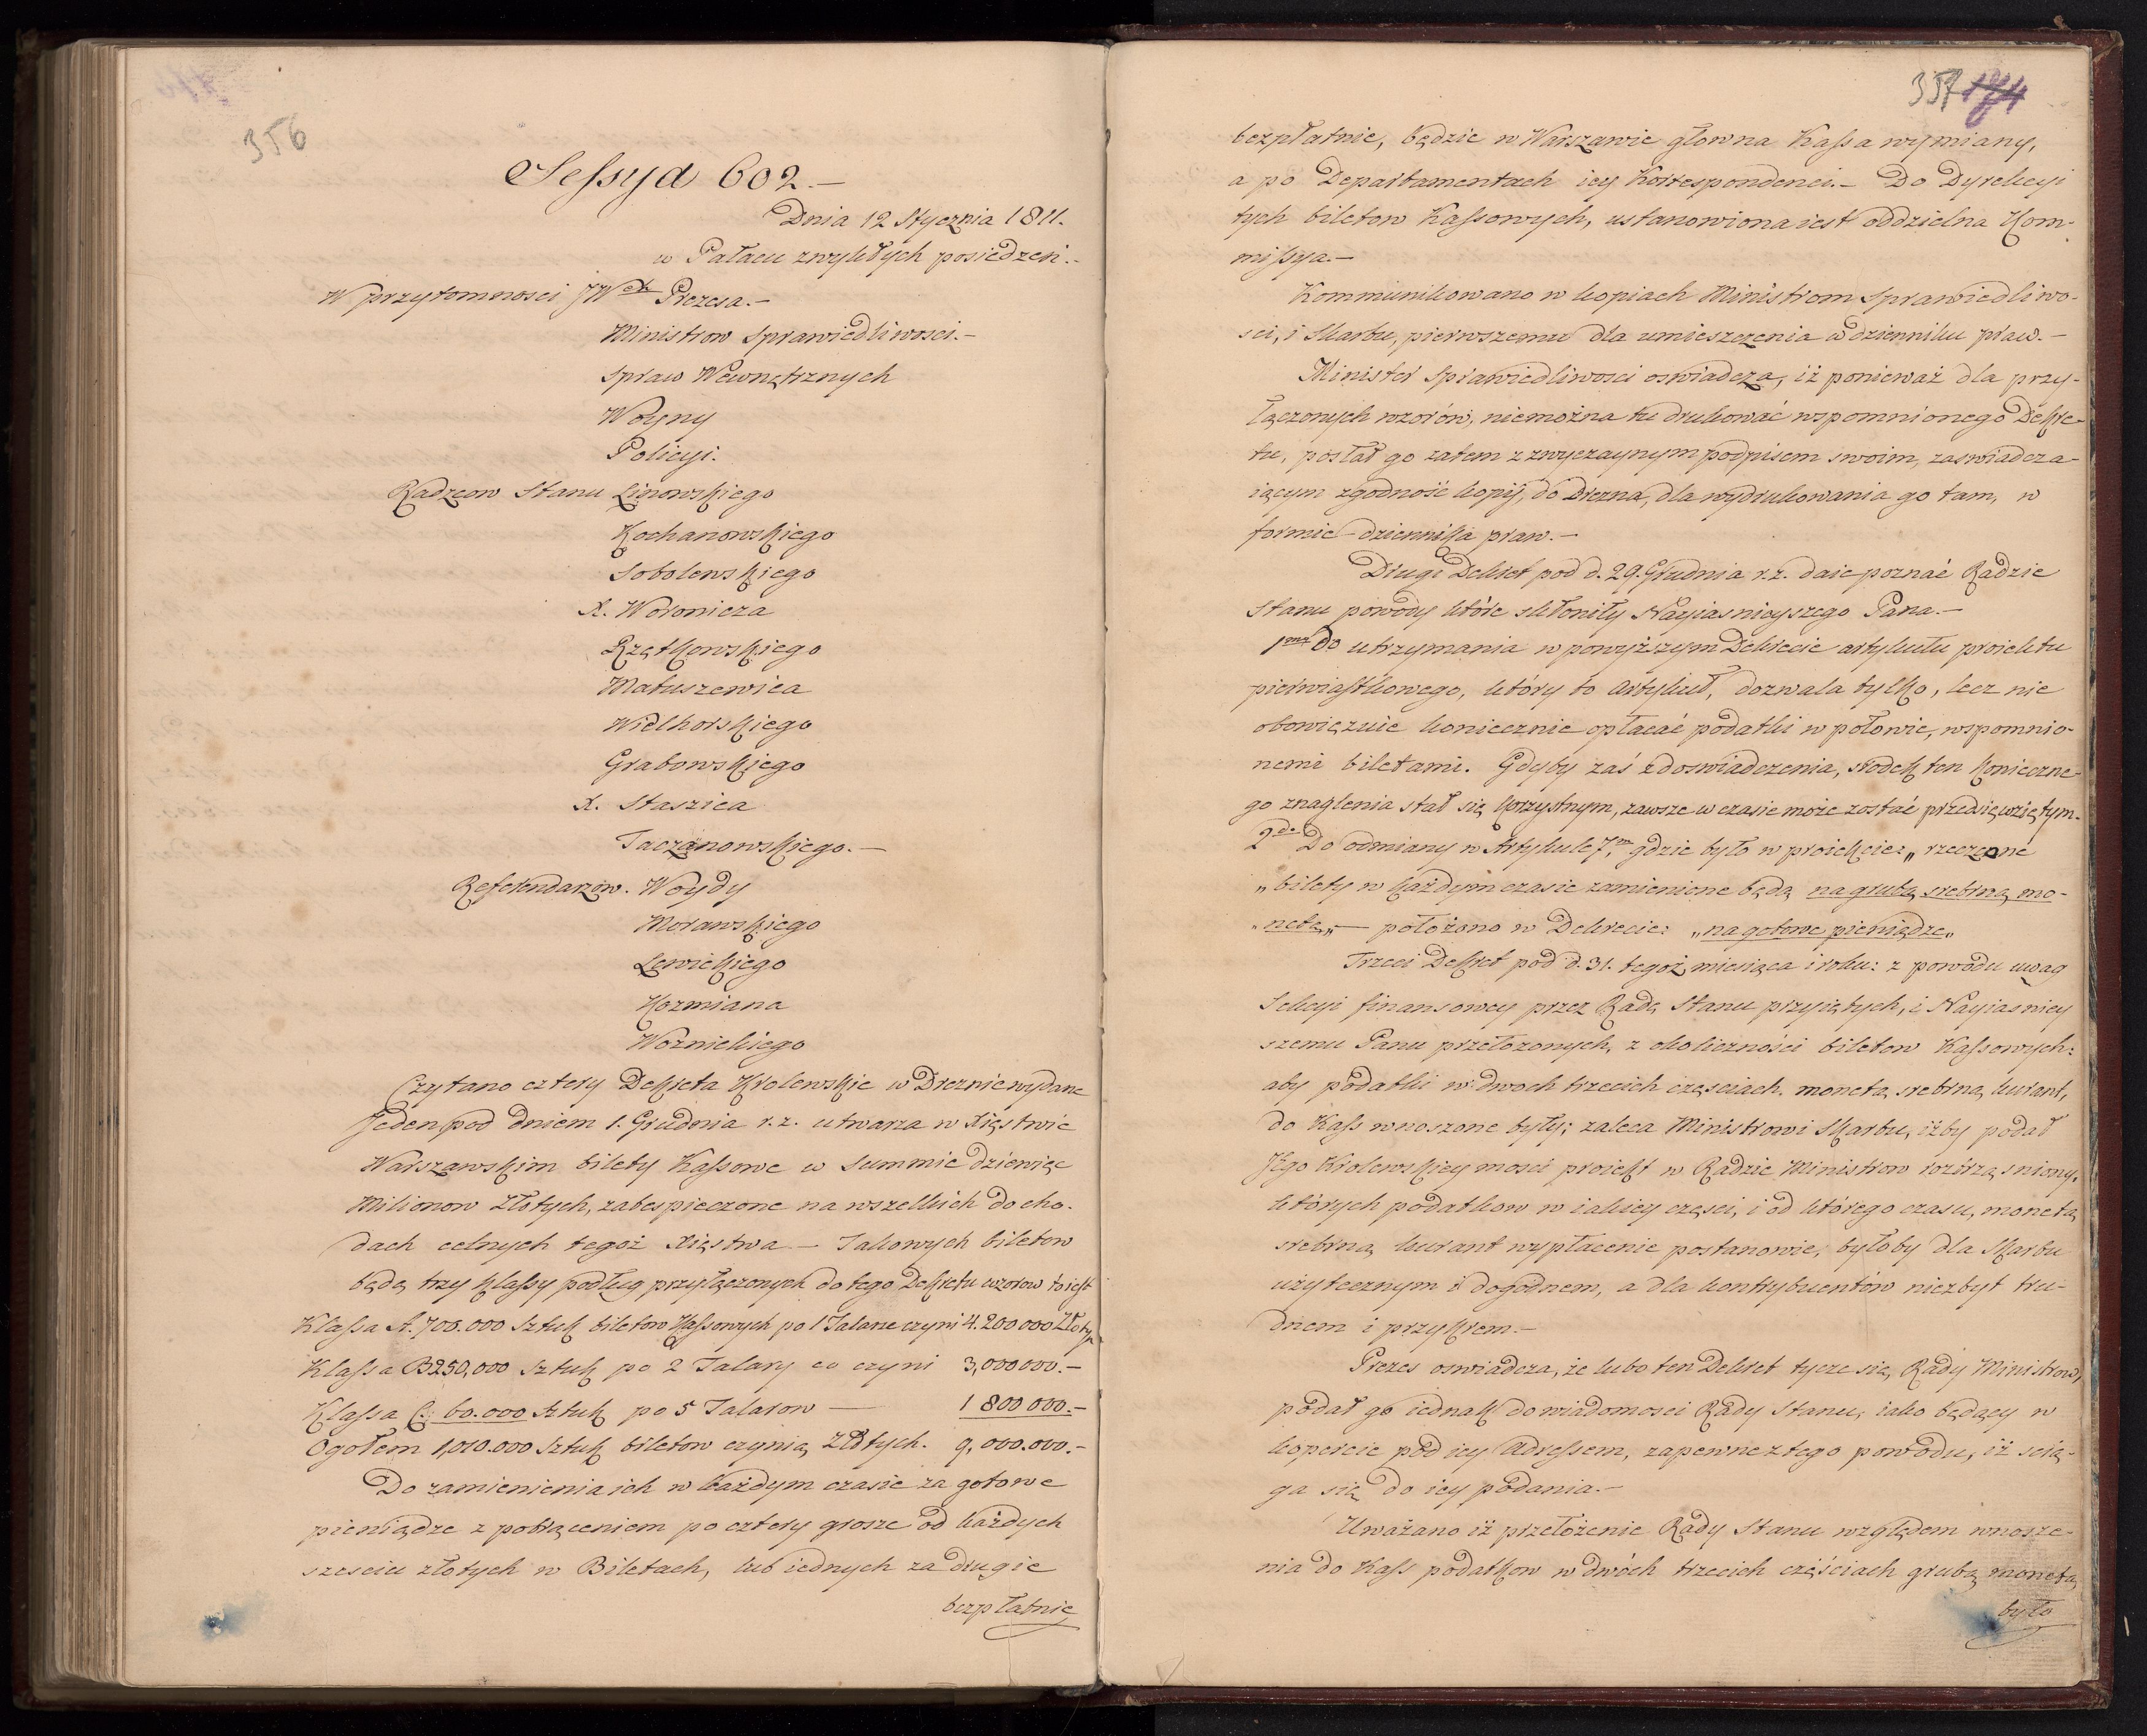 356
Sessya 602.—
Dnia 12 Stycznia 1811.
w Pałacu zwykłych posiedzeń.—
W przytomności JW Prezesa.—
Ministrow Sprawiedliwosci.—
Spraw Wewnętrznych
Woyny
Policyi.
Radzcow Stanu Linowskiego
Kochanowskiego
Sobolewskiego
X. Woronicza
Rzętkowskiego
Matuszewica
Wielhorskiego
Grabowskiego
X. Staszica
Taczanowskiego.—
Referendarzow. Woydy
Morawskiego
Lewickiego
Kozmiana
Woznickiego
Czytano cztery Dekreta Krolewskie w Dreznie wydane
Jeden pod dniem 1. Grudnia r. z. utwarza w Xięstwie
Warszawskim bilety Kassowe w Summie dziewięc
Milionow Złotych, zabespieczone na wszelkich docho-
dach celnych tegoż Xięstwa.— Takowych biletow
będą trzy klassy podług przyłączonych do tego Dekretu wzorow to iest
Klassa A. 700.000 Sztuk biletow Kassowych po 1 Talarze czyni 4.200000 Złotych
Klassa B 250,000 Sztuk po 2 Talary co czyni 3,000000.—
Klassa C. 60.000 Sztuk po 5 Talarow — 1 800 000.—
Ogołem 1,010.000 Sztuk biletow czynią Złotych. 9,000.000.—
Do zamienienia ich w każdym czasie za gotowe
pieniądze z potrąceniem po cztery grosze od każdych
szesciu złotych w Biletach, lub iednych za drugie
bezpłatnie
357 174
bezpłatnie, będzie w Warszawie głowna Kassa wymiany,
a po Departamentach iey Korrespondenci.— Do Dyrekcyi
tych biletow Kassowych, ustanowiona iest oddzielna Kom-
missya.—
Kommunikowano w kopiach Ministrom Sprawiedliwo-
sci, i Skarbu, pierwszemu dla umieszczenia w dzienniku praw.—
Minister Sprawiedliwosci oswiadcza, iż ponieważ dla przy-
łączonych wzorów, niemożna tu drukować wspomnionego Dekre-
tu, posłał go zatem z zwyczaynym podpisem swoim, zaswiadcza-
iącym zgodność kopij, do Drezna, dla wydrukowania go tam, w
formie dziennika praw.—
Drugi Dekret pod d. 29. Grudnia r. z. daie poznać Radzie
Stanu powody które skłoniły Nayiasnieyszego Pana.—
1mo do utrzymania w powyższym Dekrecie artykułu proiektu
pierwiastkowego, który to artykuł, dozwala tylko, lecz nie
obowięzuie koniecznie opłacać podatki w połowie, wspomnio-
nemi biletami. Gdyby zaś z doswiadczenia, srodek ten konieczne-
go znaglenia stał się korzystnym, zawsze w czasie może zostać przedsięwziętym.
2do Do odmiany w Artykule 7m, gdzie było w proiekcie: „ rzeczone
„ bilety w każdym czasie zamienione będą na grubą srebrną mo-
„ netę„ — położono w Dekrecie: „na gotowe pieniądze„
Trzeci Dekret pod d. 31. tegoż miesiąca i roku: z powodu uwag
Sekcyi finansowey przez Radę Stanu przyiętych, i Nayiasniey
szemu Panu przełożonych, z okoliczności biletow Kassowych:
aby podatki w dwoch trzecich częsciach, monetą srebrną kurant,
do Kass wnoszone były; zaleca Ministrowi Skarbu, iżby podał
Jego Krolewskiey mosci proiekt w Radzie Ministrow roztrząsniony,
których podatkow w iakiey częsci, i od którego czasu, monetą
srebrną kurant wypłacenie postanowie, byłoby dla Skarbu
użytecznym i dogodnem, a dla kontrybuentów niezbyt tru-
dnem i przykrem.—
Prezes oswiadcza, że lubo ten Dekret tycze się, Rady Ministrow,
podał go iednak do wiadomosci Rady Stanu, iako będący w
kopercie pod iey Adressem, zapewne z tego powodu, iż scią-
ga się do iey podania.—
Uważano iż przełożenie Rady Stanu względem wnosze-
nia do Kass podatkow w dwóch trzecich częściach grubą monetą
było